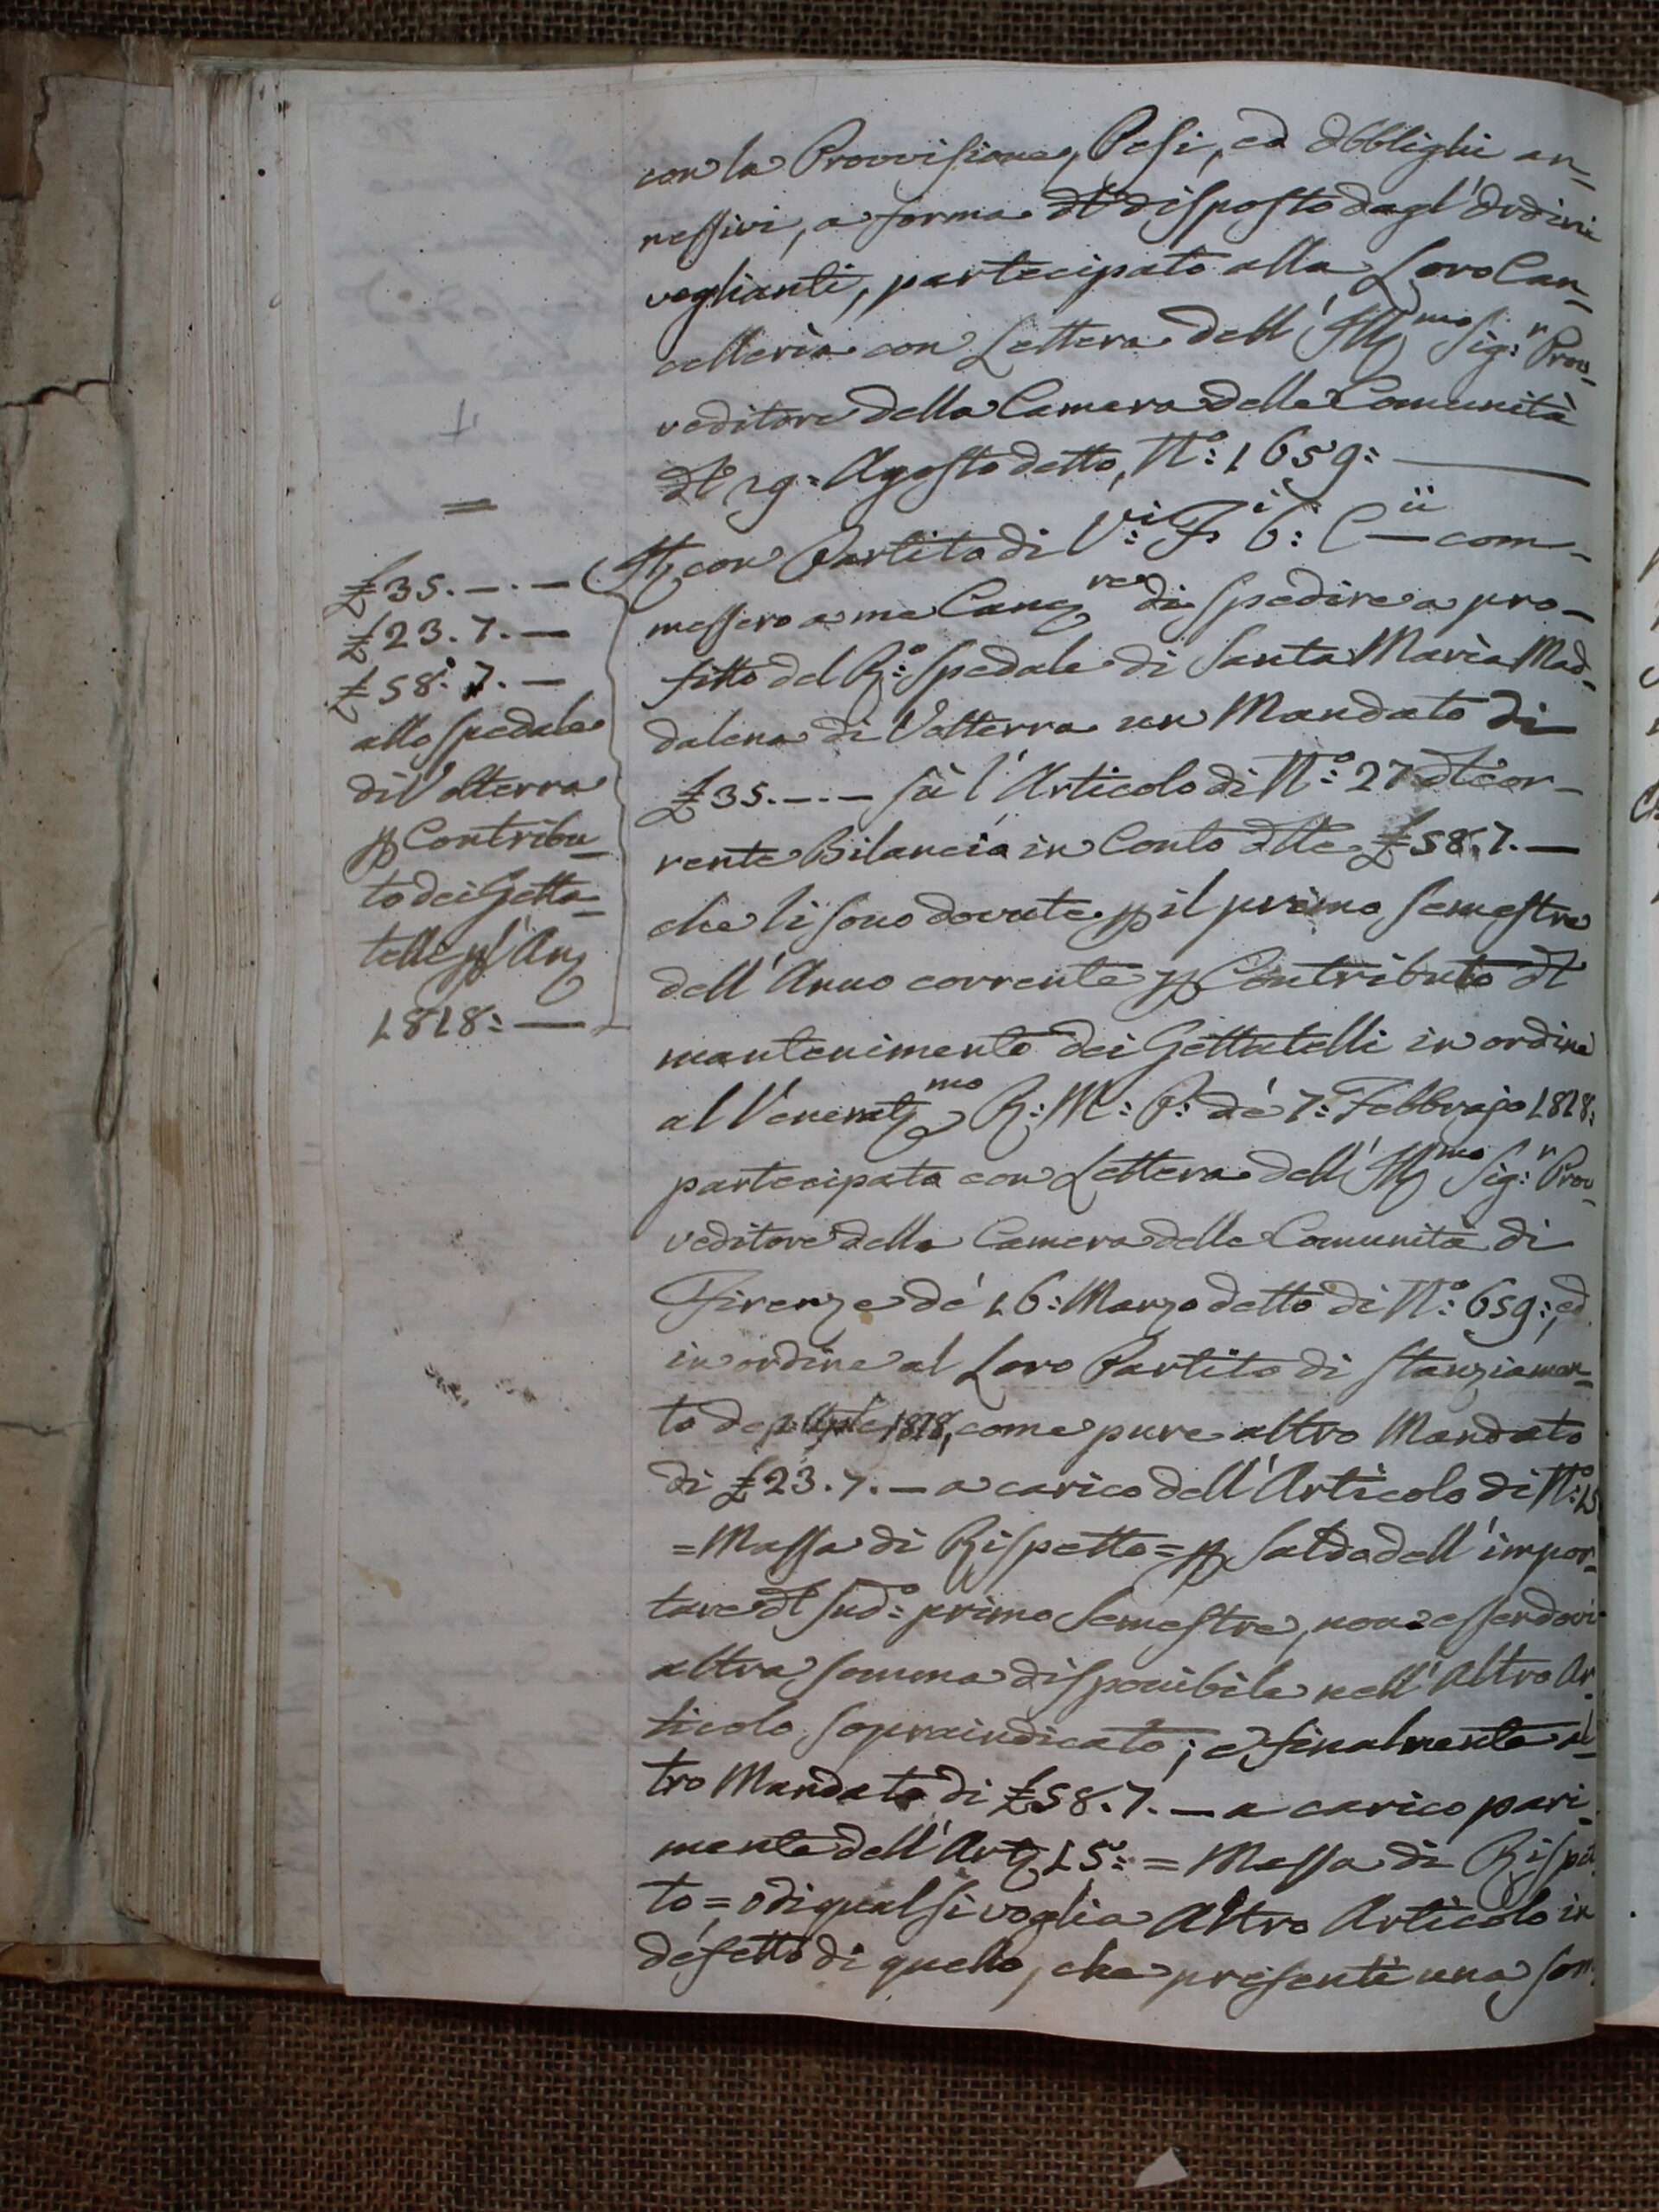 con la Provvisione, Pesi, ed Obblighi an=
nessivi, a forma dl disposto dagl' Ordini
veglianti, partecipato alla Loro Can=
celleria con Lettera dell' Ill.mo Sig:r Prov=
veditore della Camera delle Comunità
dl 29= Agosto detto, N.o: 1659: —
=
It; con Partito di V:i F.i 6: C—ii com=
messero a me Canc.re di spedire a pro=
fitto del R:o Spedale di Santa Maria Mad=
dalena di Volterra un Mandato di
£35.—.— sù l'Articolo di N.o: 27 dl cor=
rente Bilancia in Conto dlle £58.7.—
che li sono dovute p il primo Semestre
dell' Anno corrente p Contributo dl
mantenimento dei Gettatelli in ordine
al Venerat.mo R: M: P: de' 7: Febbrajo 1818:
partecipata con Lettera dell' Ill.mo Sig:r Prov=
veditore della Camera delle Comunità di
Firenze de' 16: Marzo detto di N.o: 659:, ed
in ordine al Loro Partito di Stanziamen=
to de 1818, come pure altro Mandato
di £23.7.— a carico dell' Articolo di N.o: 15
=Massa di Rispetto= p Saldo dell' impor=
tare dl Sud:o primo Semestre, non essendovi
altra somma disponibile nell' Altro Ar=
ticolo sopraindicato; e finalmente al=
tro Mandato di £58.7.— a carico pari=
mente dell' Art; 15: = Massa di Rispet
to= o di qualsivoglia Altro Articolo in
defetto di quello, che presenti una som
£35.—.—
£23.7.—
£58.7.—
allo Spedale
di Volterra
p Contribu=
to dei Getta=
telli p l' An;
1818: —